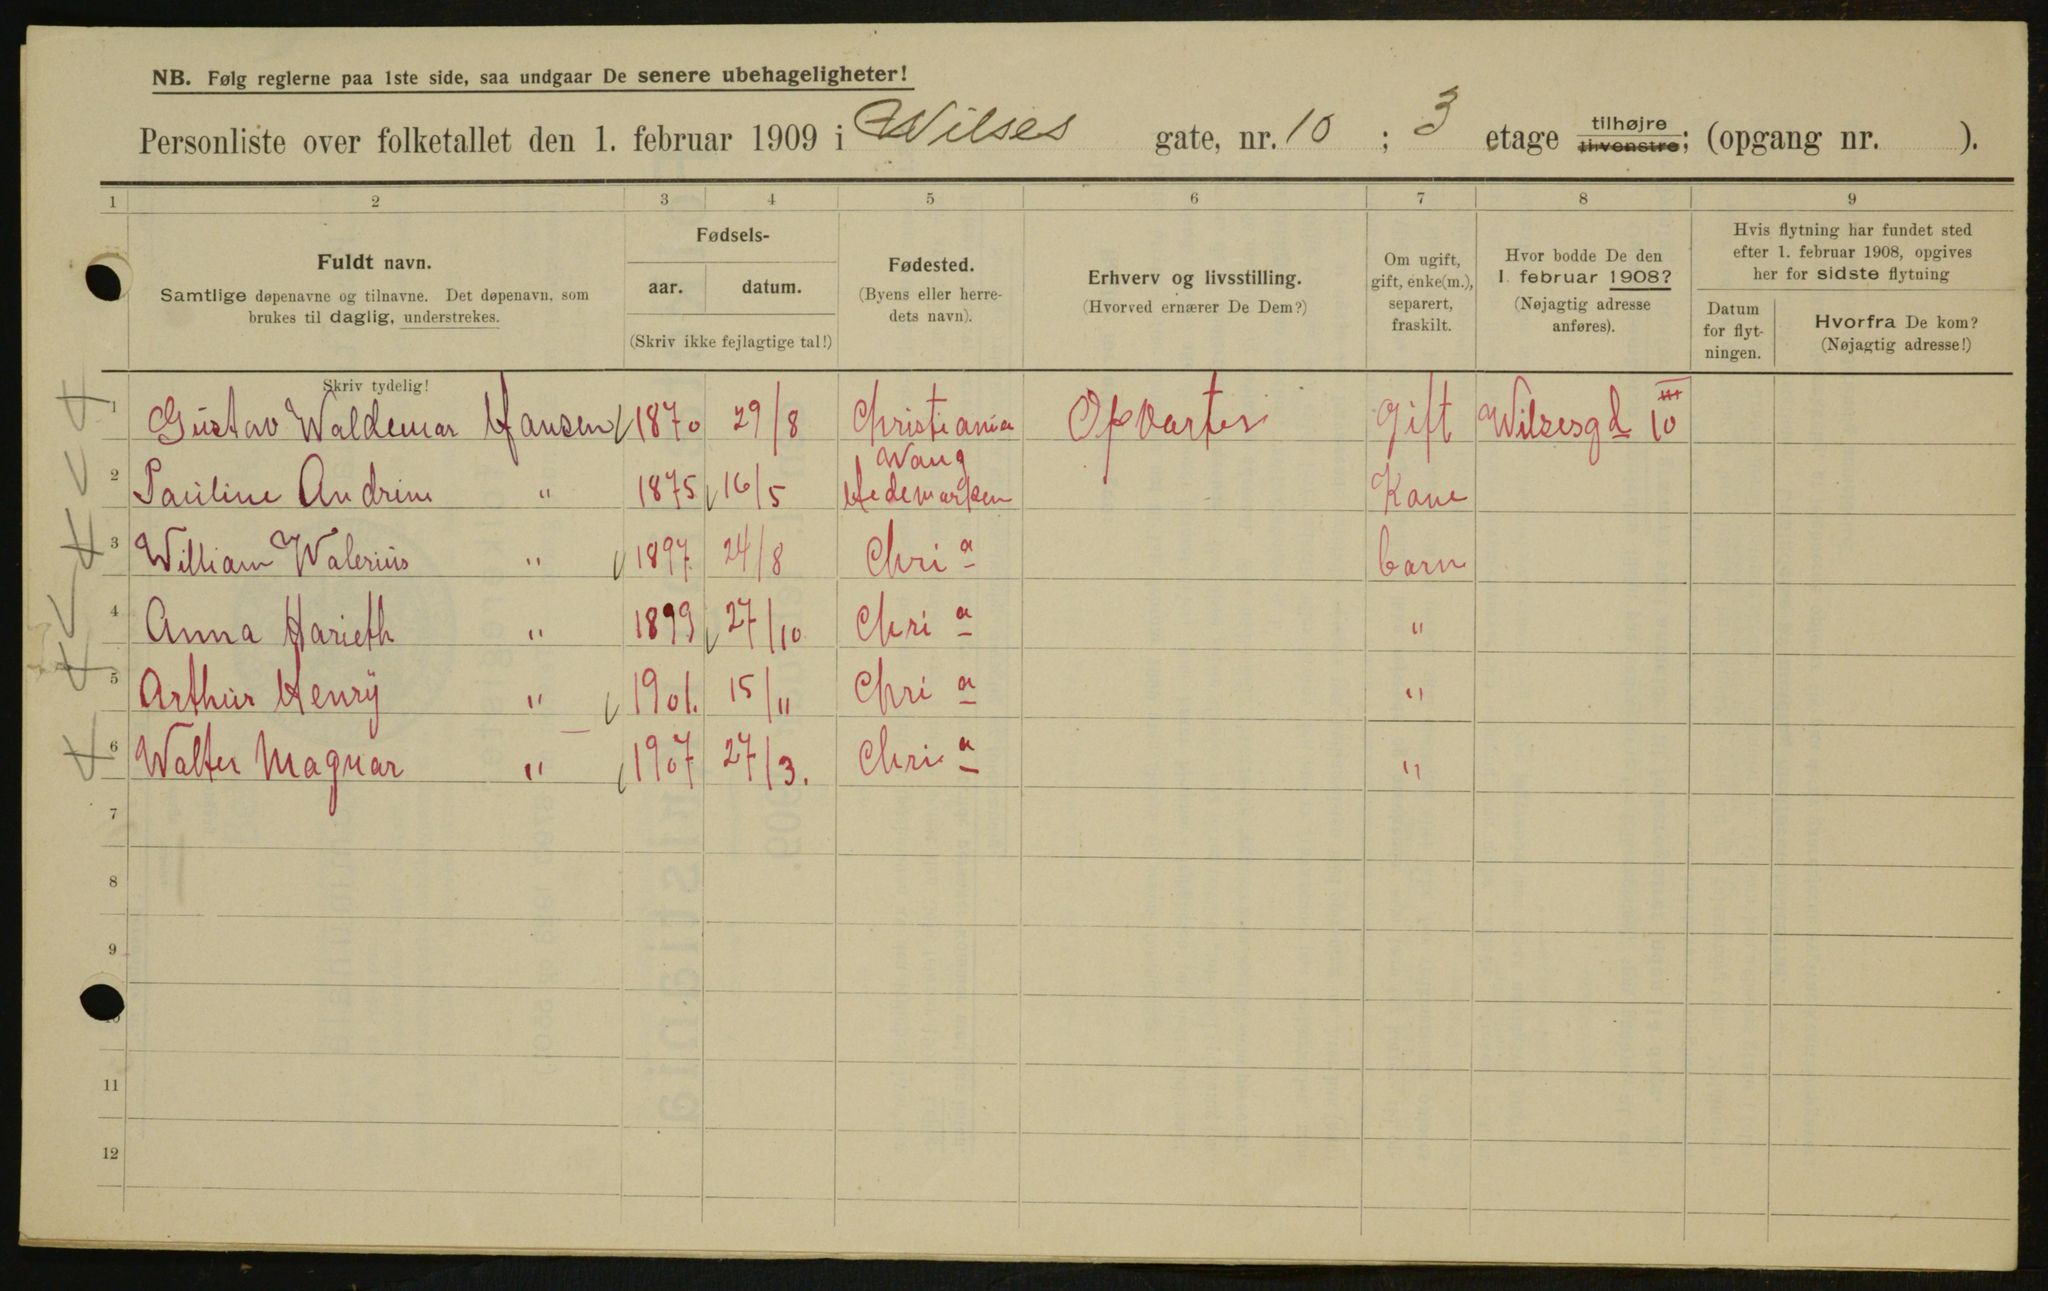 NB. Følg reglerne paa 1ste side, saa undgaar De senere ubehageligheter!
Personliste over folketallet den 1. februar 1909 i Wilses gate, nr. 10 ; 3 etage tilhøjre tilvenstre; (opgang nr. ).
1 2 3 4 5 6 7 8 9
Fuldt navn.
Samtlige døpenavne og tilnavne. Det døpenavn, som
brukes til daglig, understrekes.
Fødsels-
aar. datum.
(Skriv ikke fejlagtige tal!)
Fødested.
(Byens eller herre-
dets navn).
Erhverv og livsstilling.
(Hvorved ernærer De Dem?)
Om ugift,
gift, enke(m.),
separert,
fraskilt.
Hvor bodde De den
1. februar 1908?
(Nøjagtig adresse
anføres).
Hvis flytning har fundet sted
efter 1. februar 1908, opgives
her for sidste flytning
Datum
for flyt-
ningen.
Hvorfra De kom?
(Nøjagtig adresse!)
Skriv tydelig!
1 Gustav Waldemar Hansen 1870 29/8 Christiania Opvarter Gift Wilsesgd 10 III
2 Pauline Andrine " 1875 16/5 Wang Hedemarken Kone
3 William Walerius " 1897 24/8 Chria barn
4 Anna Harieth " 1899 27/10 Chria "
5 Arthur Henry " 1901. 15/11 Chria "
6 Walter Magnar " 1907 27/3. Chria "
7
8
9
10
11
12